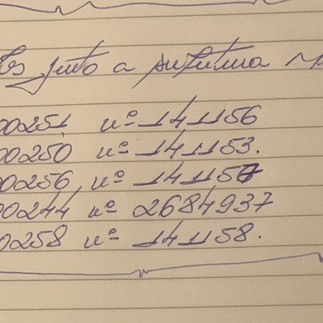 junto a prefeitura
00251, nº 141156
00250 nº 141153.
00256 nº 141157
00244 nº 2684937
00258 nº 141158.